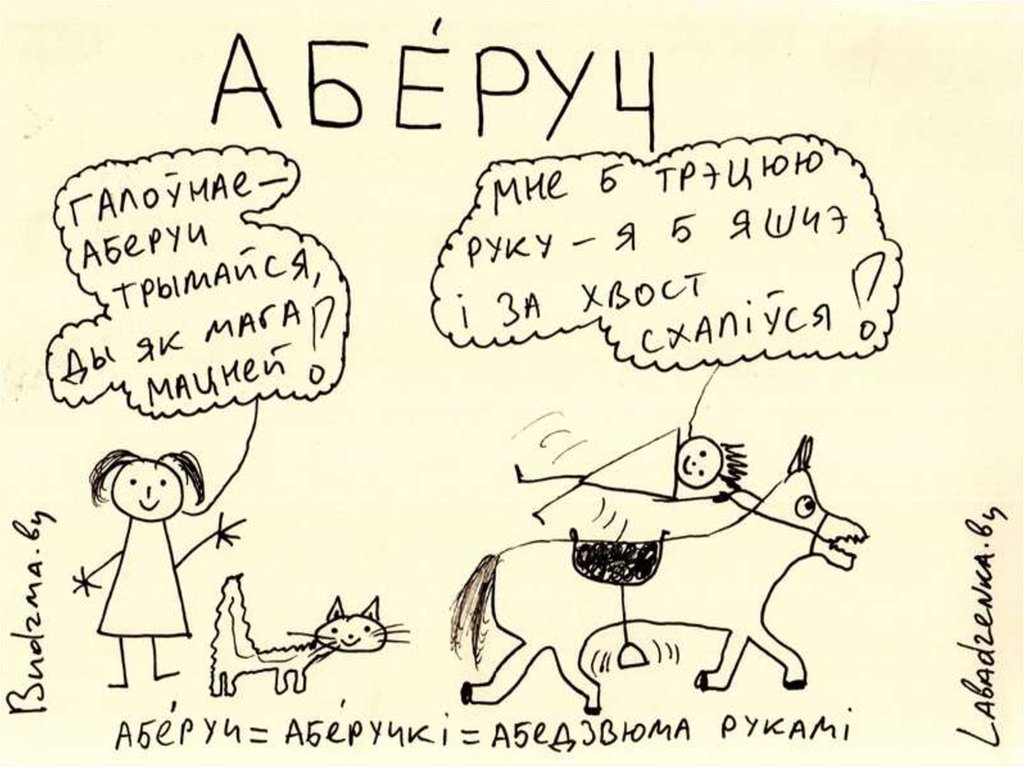 АБЕ́РУЧ
ГАЛОЎНАЕ –
АБЕРУЧ
ТРЫМАЙСЯ,
ДЫ ЯК МАГА
МАЦНЕЙ!
МНЕ Б ТРЭЦЮЮ
РУКУ – Я Б ЯШЧЭ
І ЗА ХВОСТ
СХАПІЎСЯ!
Budzma.by
Labadzenka.by
АБЕ́РУЧ = АБЕ́РУЧКІ = АБЕДЗВЮМА РУКАМІ